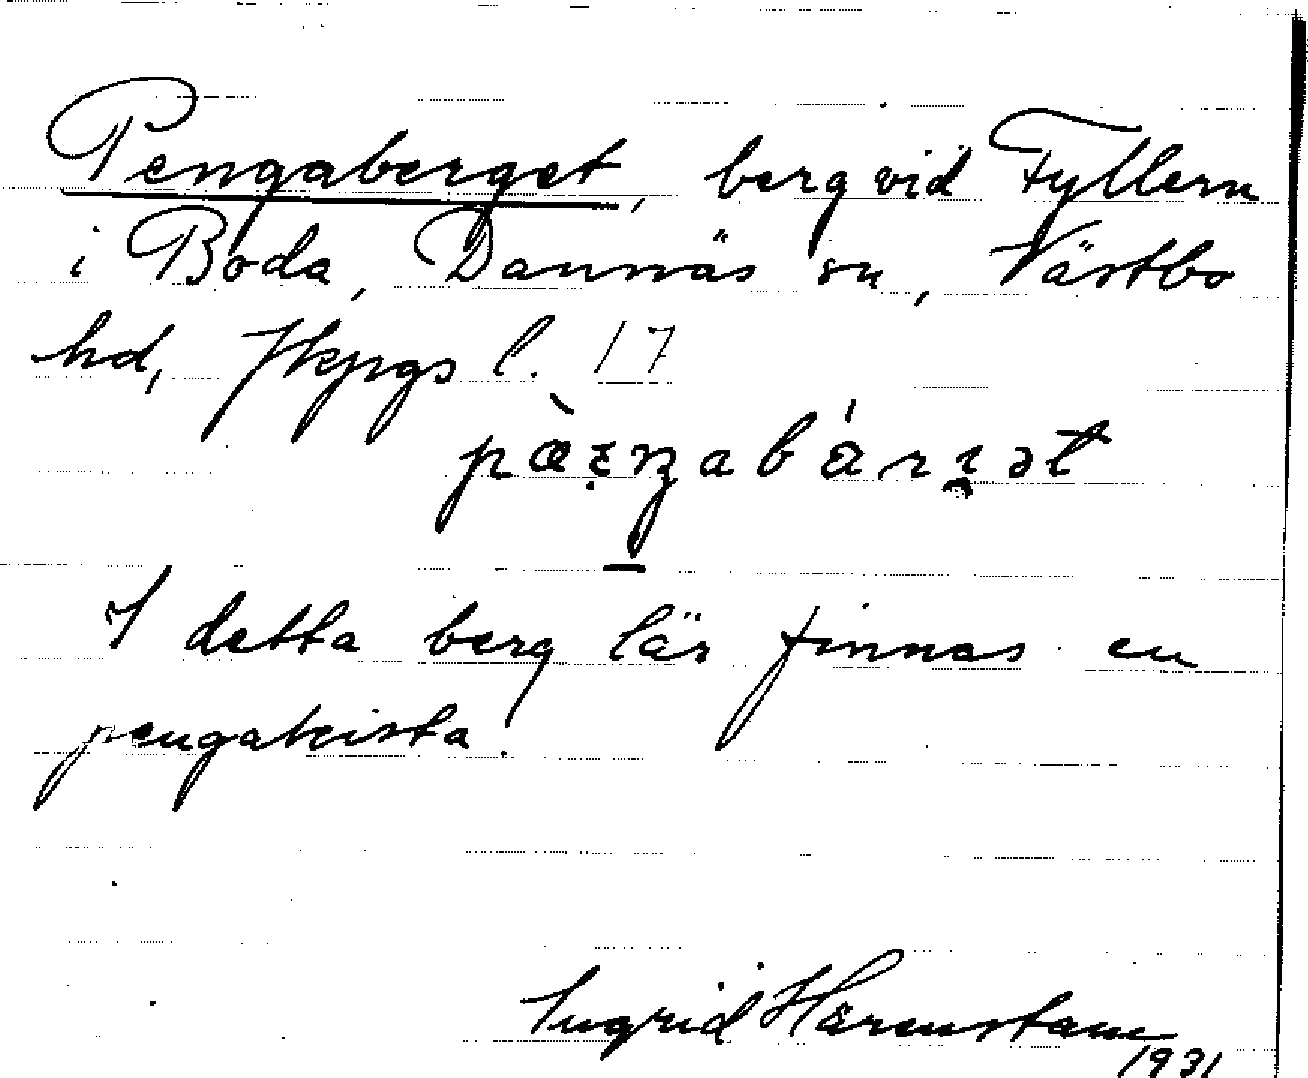 Pengaberget, berg vid Fyllern
i Boda, Dannäs sn, Västbo
hd, Jkpgs l. 17
I detta berg lär finnas en
pengakista.
Ingrid Härenstam
1931